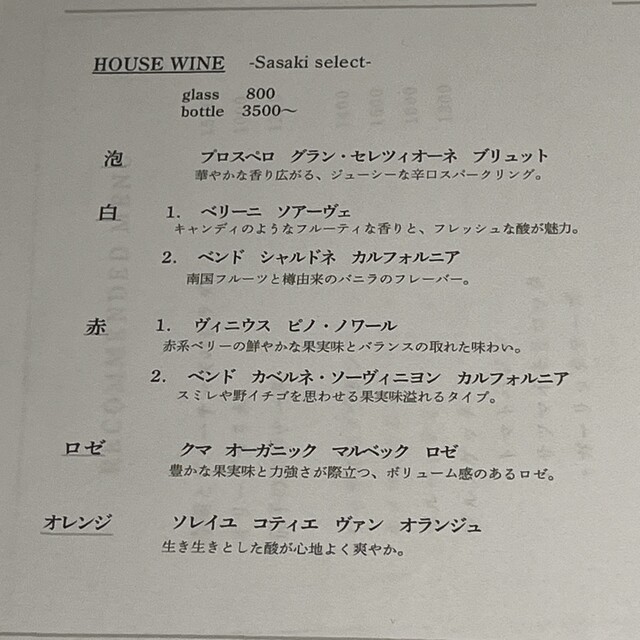 HOUSE WINE -Sasaki select-
glass 800
bottle 3500～
泡 プロスペロ グラン・セレツィオーネ ブリュット
華やかな香り広がる、ジューシーな辛口スパークリング。
白 1. ベリーニ ソアーヴェ
キャンディのようなフルーティな香りと、フレッシュな酸が魅力。
2. ベンド シャルドネ カルフォルニア
南国フルーツと樽由来のバニラのフレーバー。
赤 1. ヴィニウス ピノ・ノワール
赤系ベリーの鮮やかな果実味とバランスの取れた味わい。
2. ベンド カベルネ・ソーヴィニヨン カルフォルニア
スミレや野イチゴを思わせる果実味溢れるタイプ。
ロゼ クマ オーガニック マルベック ロゼ
豊かな果実味と力強さが際立つ、ボリューム感のあるロゼ。
オレンジ ソレイユ コティエ ヴァン オランジュ
生き生きとした酸が心地よく爽やか。
RECOMMENDED MENU